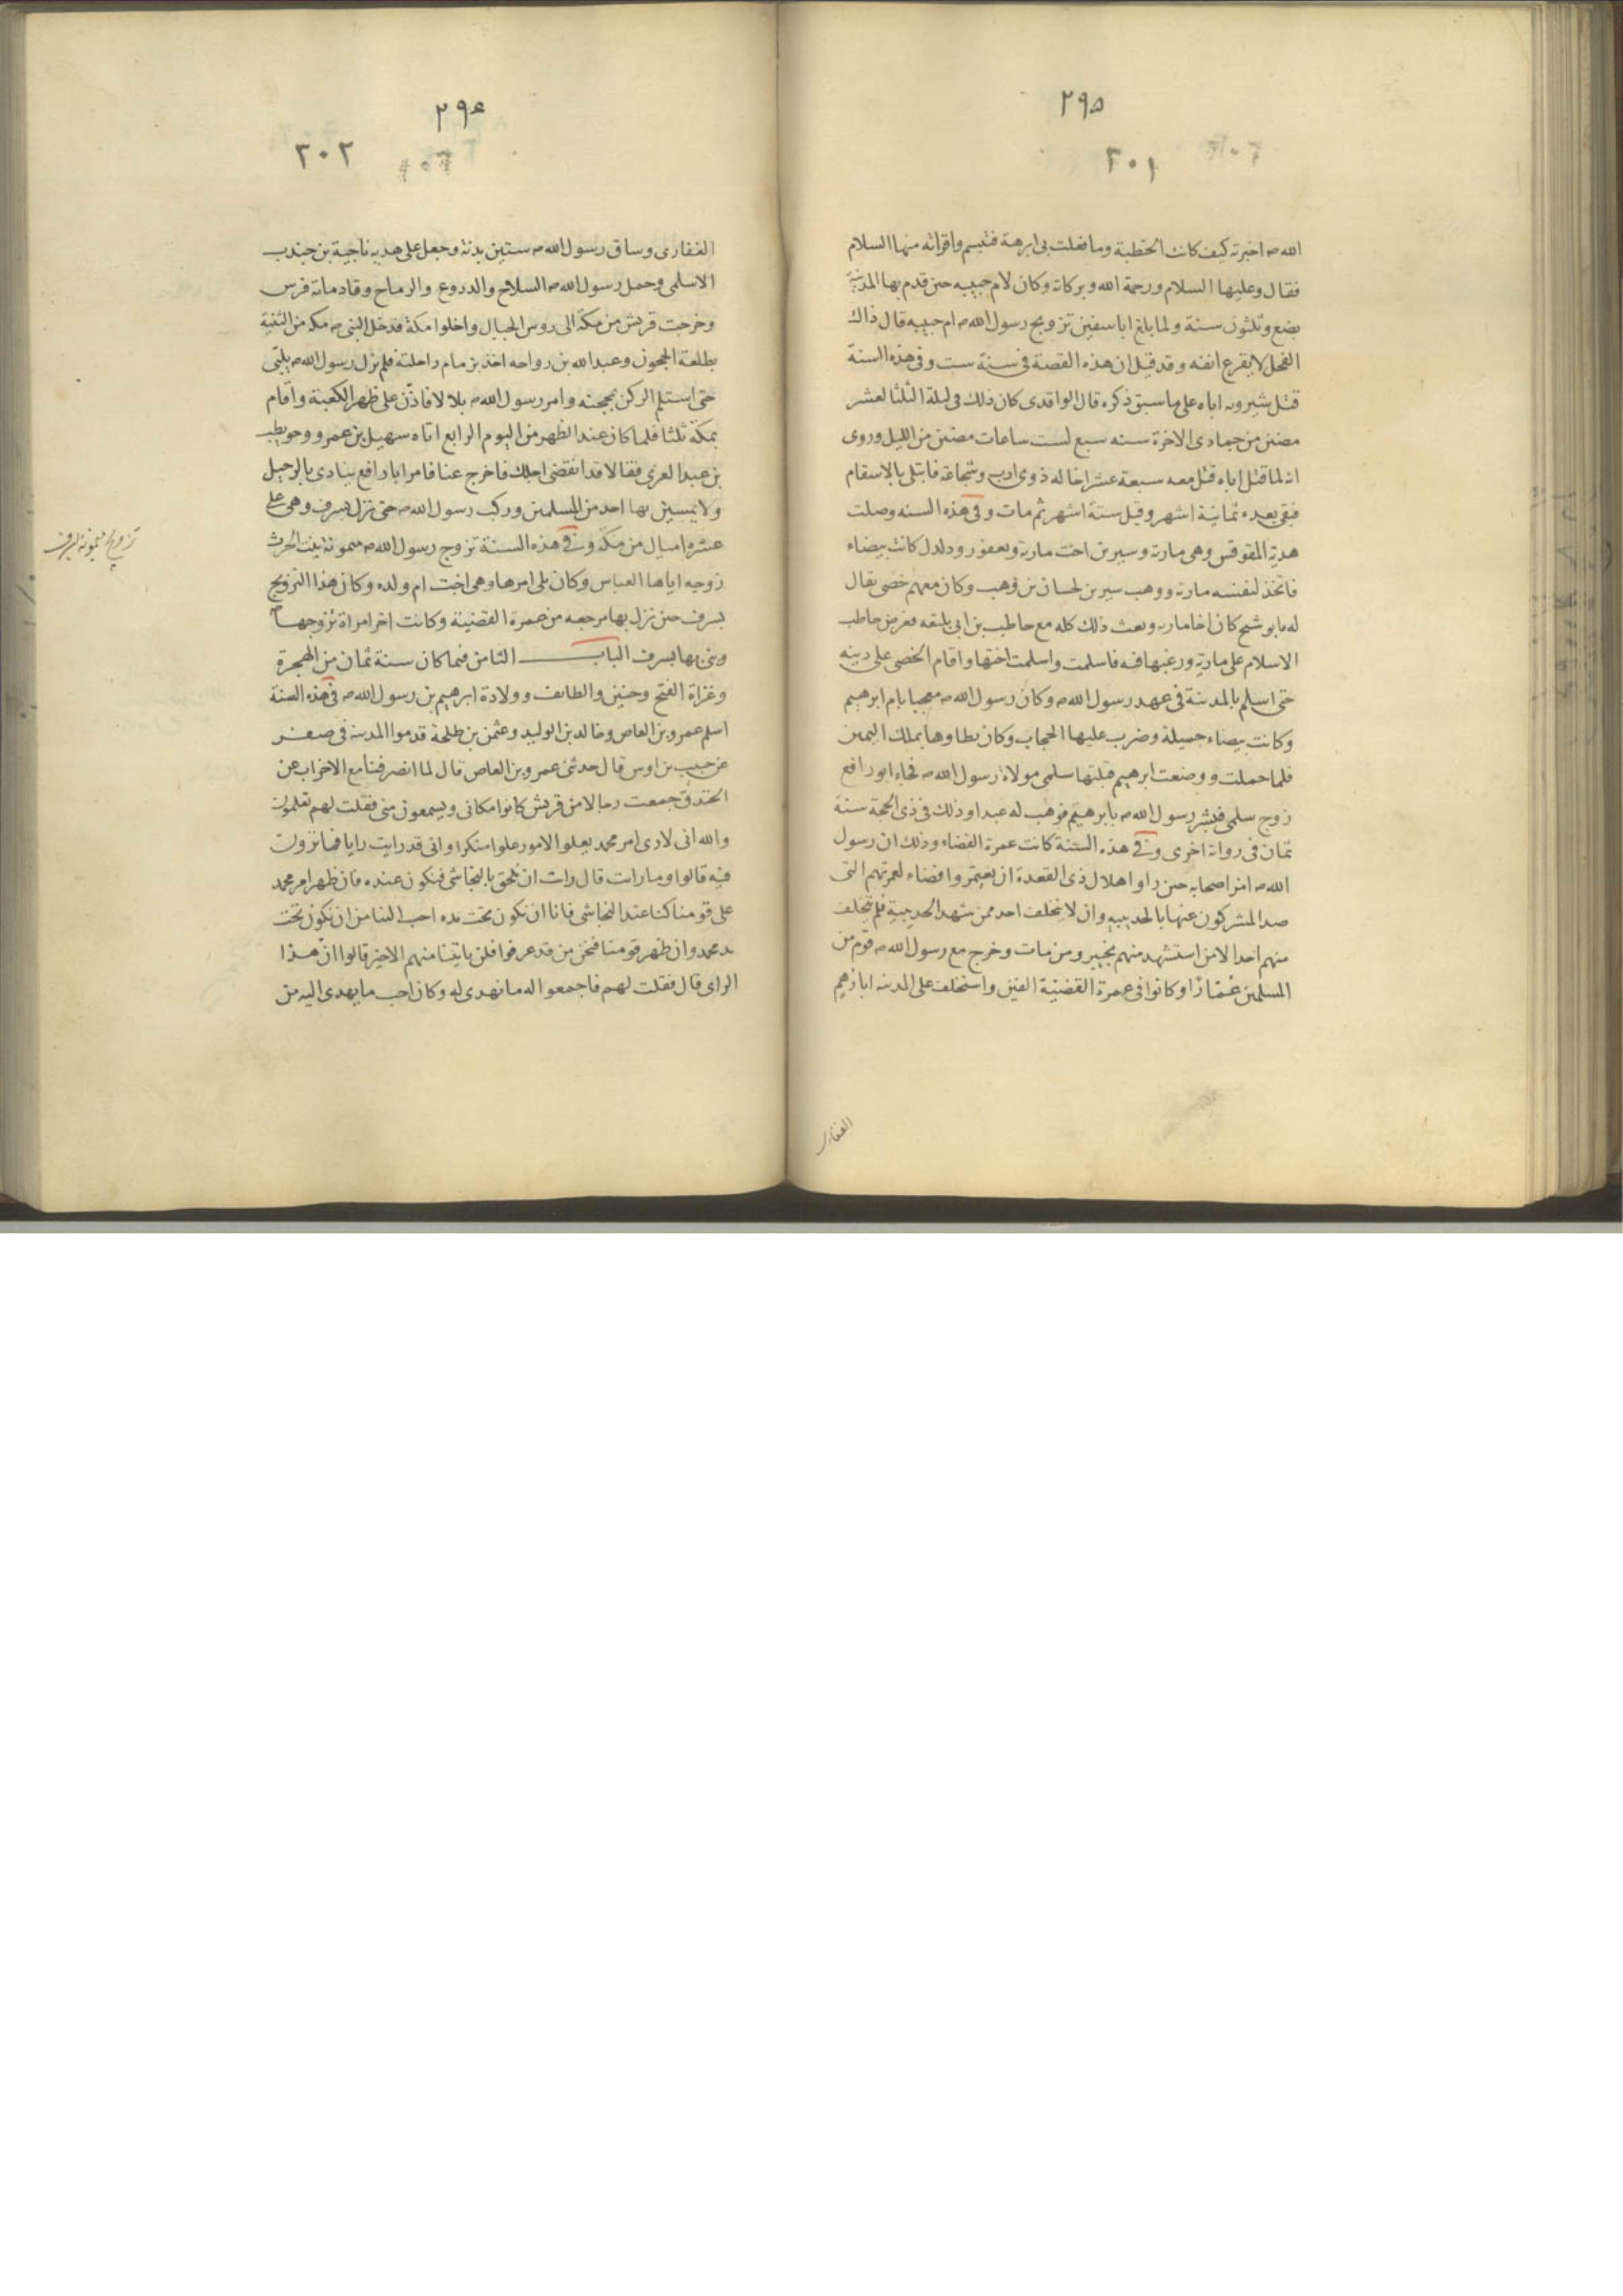 ٢٩٥
٣٠١
الله ص اخبرته كيف كانت الخطبة وما فعلت بى ابرهة فتبسم واقراته منها السلام
فقال وعليها السلام ورحمة الله وبركاته وكان لام حبيبه حين قدم بها المدينة
بضع وثلثون سنة ولما بلغ ابا سفين تزويج رسول الله ص ام حبيبه قال ذاك
الفحل لا يقرع انفه وقد قيل ان هذه القصة فى سنة ست وفى هذه السنة
قتل شيرويه اباه على ما سبق ذكره قال الواقدى كان ذلك فى ليلة الثلثا لعشر
مضين من جمادى الاخرة سنه سبع لست ساعات مضين من الليل وروى
انه لما قتل اباه قتل معه سبعة عشر اخا له ذوى ادب وشجاعة فابتلى بالاسقام
فبقى بعده ثمانية اشهر وقيل ستة اشهر ثم مات وفى هذه السنه وصلت
هدية المقوقس وهى مارية وسيرين اخت مارية ويعفور ودلدل كانت بيضاء
فاتخذ لنفسه مارية ووهب سيرين لحسان بن وهب وكان معهم خصى يقال
له مابو شيح كان اخا ماريه وبعث ذلك كله مع حاطب بن ابى بلتعه فعرض حاطب
الاسلام على مارية ورغبها فيه فاسلمت واسلمت اختها واقام الخصى على دينه
حتى اسلم بالمدينة فى عهد رسول الله ص وكان رسول الله ص معجبا بام ابرهيم
وكانت بيضاء جميلة وضرب عليها الحجاب وكان يطاوها بملك اليمين
فلما حملت ووضعت ابرهيم قبلتها سلمى مولاة رسول الله ص فجاء ابو رافع
زوج سلمى فبشر رسول الله ص بابرهيم فوهب له عبدا وذلك فى ذى الحجة سنة
ثمان فى رواية اخرى وفى هذه السنة كانت عمرة القضاء وذلك ان رسول
الله ص امر اصحابه حين راوا هلال ذى القعدة ان يعتمروا قضاء لعمرتهم التى
صد المشركون عنها بالحديبيه وان لا يتخلف احد ممن شهد الحديبية فلم يتخلف
منهم احد الا من استشهد منهم بخيبر ومن مات وخرج مع رسول الله ص قوم من
المسلمين عمّارًا وكانوا فى عمرة القضيّة الفين واستخلف على المدينه ابا رهم
الغفارى
٢٩٤
٣٠٢
الغفارى وساق رسول الله ص ستين بدنة وجعل على هديه ناجية بن جندب
الاسلمى وحمل رسول الله ص السلاح والدروع والرماح وقاد ماية فرس
وخرجت قريش من مكة الى روس الجبال واخلوا مكة فدخل النبى ص مكه من الثنية
بطلعة الحجون وعبد الله بن رواحه اخذ بزمام راحلته فلم يزل رسول الله ص يلبّى
حتى استلم الركن بمحجنه وامر رسول الله ص بلالا فاذّن على ظهر الكعبة واقام
بمكة ثلثا فلما كان عند الظهر من اليوم الرابع اتاه سهيل بن عمرو وحويطب
بن عبد العزى فقالا قد انقضى اجلك فاخرج عنا فامر ابا رافع ينادى بالرحيل
ولا يمسين بها احد من المسلمين وركب رسول الله ص حتى نزل بسرف وهى على
عشره اميال من مكه وفى هذه السنة تزوج رسول الله ص ميمونة بنت الحرث
زوجه اياها العباس وكان يلى امرها وهى اخت ام ولده وكان هذا التزويج
بسرف حين نزل بها مرجعه من عمرة القضية وكانت اخر امراة تزوجها ص
وبنى بها بسرف الباب الثامن فيما كان سنة ثمان من الهجرة
وغزاة الفتح وحنين والطايف وولادة ابرهيم بن رسول الله ص فى هذه السنة
اسلم عمرو بن العاص وخالد بن الوليد وعثمن بن طلحة قدموا المدينه فى صفر
عن حبيب بن اوس قال حدثنى عمرو بن العاص قال لما انصرفنا مع الاحزاب عن
الخندق جمعت رجالا من قريش كانوا مكانى ويسمعون منى فقلت لهم تعلمون
والله انى لارى امر محمد يعلو الامور علوا منكرا وانى قد رايت رايا فما ترون
فيه قالوا وما رايت قال رايت ان نلحق بالنجاشى فنكون عنده فان ظهر امر محمد
على قومنا كنا عند النجاشى فانا ان نكون تحت يده احب الينا من ان نكون تحت
يد محمد وان ظهر قومنا فنحن من قد عرفوا فلن ياتينا منهم الا خير قالوا انّ هذا
الراى قال فقلت لهم فاجمعوا له ما نهدى له وكان احب ما يهدى اليه من
تزويج ميمونة بسرف